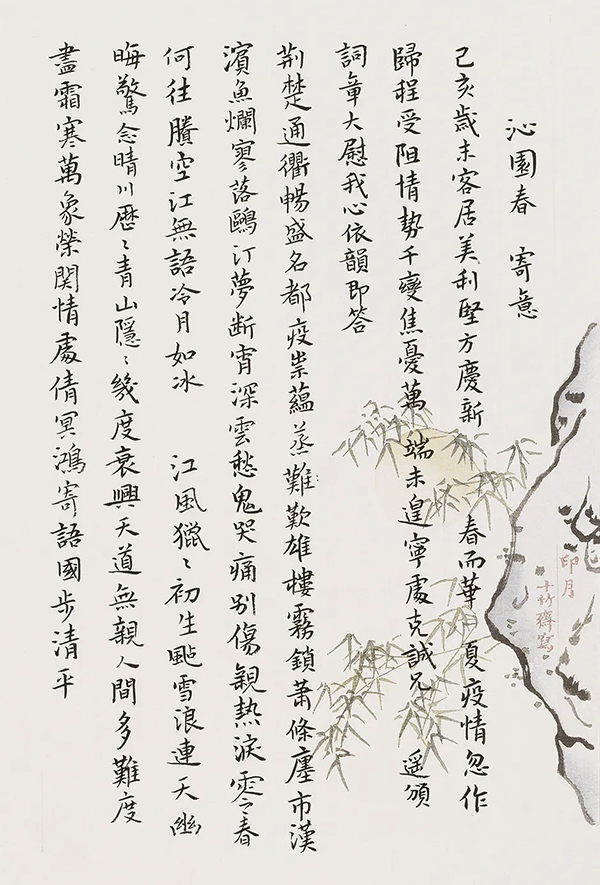 沁園春 寄意
己亥歲末客居美利堅方慶新春而華夏疫情忽作
歸程受阻情勢千變焦憂萬端未遑寧處克誠兄遥頒
詞章大慰我心依韻即答
荆楚通衢暢盛名都疫祟蘊蒸難歎雄樓霧鎖蕭條廛市漢
濱魚爛寥落鷗汀夢断宵深雲愁鬼哭痛别傷親熱淚零春
何往賸空江無語冷月如冰 江風獵〻初生颭雪浪連天幽
晦驚念晴川歷〻青山隱〻幾度衰興天道無親人間多難度
盡霜寒萬象榮関情處倩冥鴻寄語國步清平
印月
十竹齋寫